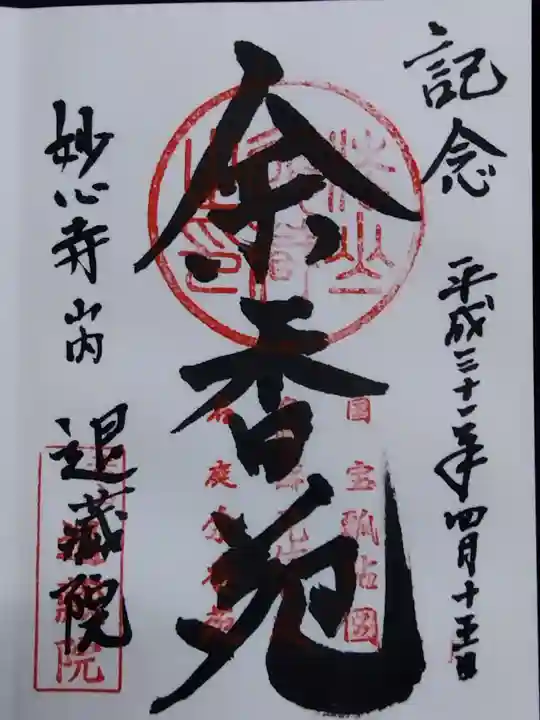 記念
平成三十一年四月十五日
余香苑
国宝瓢鮎図
名庭余香苑
妙心寺山内
退蔵院